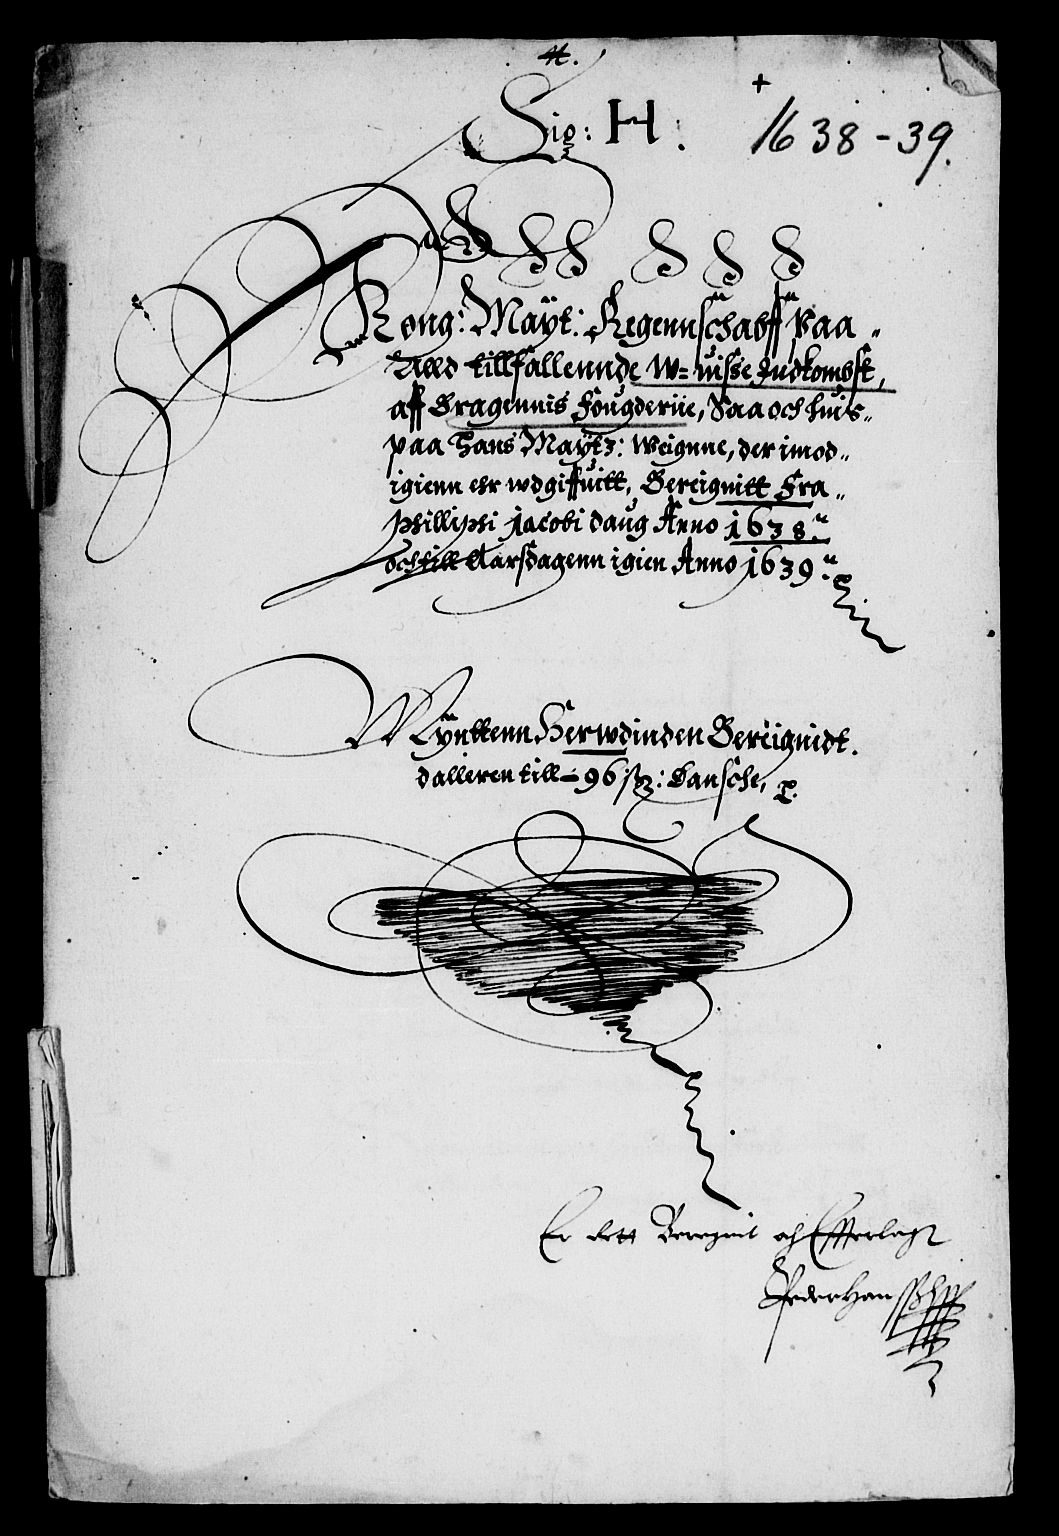 4.
Sig: H:
+
1638-39.
Kong: Maÿt: Regennschabff Paa
Ald tillfallennde W=uisse Indkombst,
aff Bragennis Fougderiie, Saa och huis
paa Hans Maÿtz: Weignne, der imod
igienn ehr wdgiffuitt, Bereignitt Fra
Phillippi Jacobi daug Anno 1638.
och till Aarsdagenn igien Anno 1639.
Mÿnttenn Herwdinden Bereignidt.
dalleren till 96 ß: Dansche,
Er dett Beregnit och Efterlagt
Peder Hanß